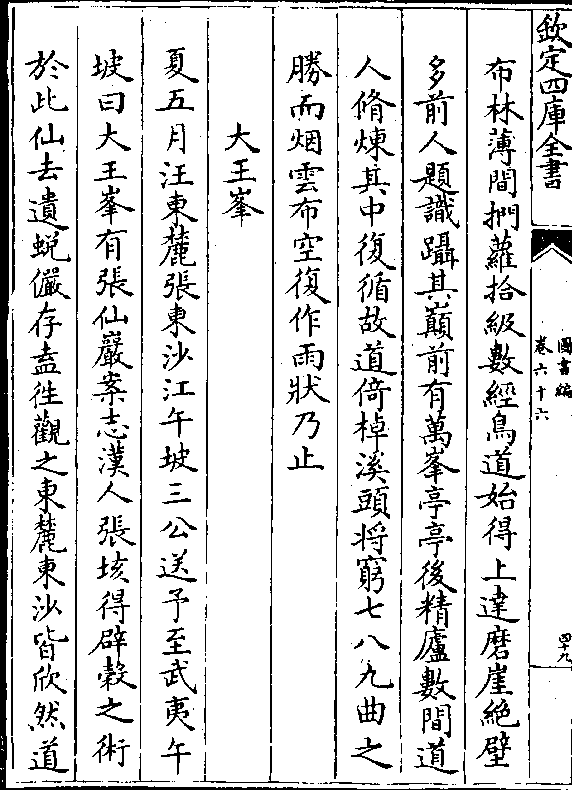 欽定四庫全書
圖書編
卷六十六
四十九
布林薄間捫蘿拾級數經鳥道始得上達磨崖絶壁
多前人題識躡其巔前有萬峯亭亭後精廬數間道
人脩煉其中復循故道倚棹溪頭将窮七八九曲之
勝而烟雲布空復作雨狀乃止
大王峯
夏五月汪東麓張東沙江午坡三公送予至武夷午
坡曰大王峯有張仙巖案志漢人張垓得辟榖之術
於此仙去遺蜕儼存盍徃觀之東麓東沙皆欣然道